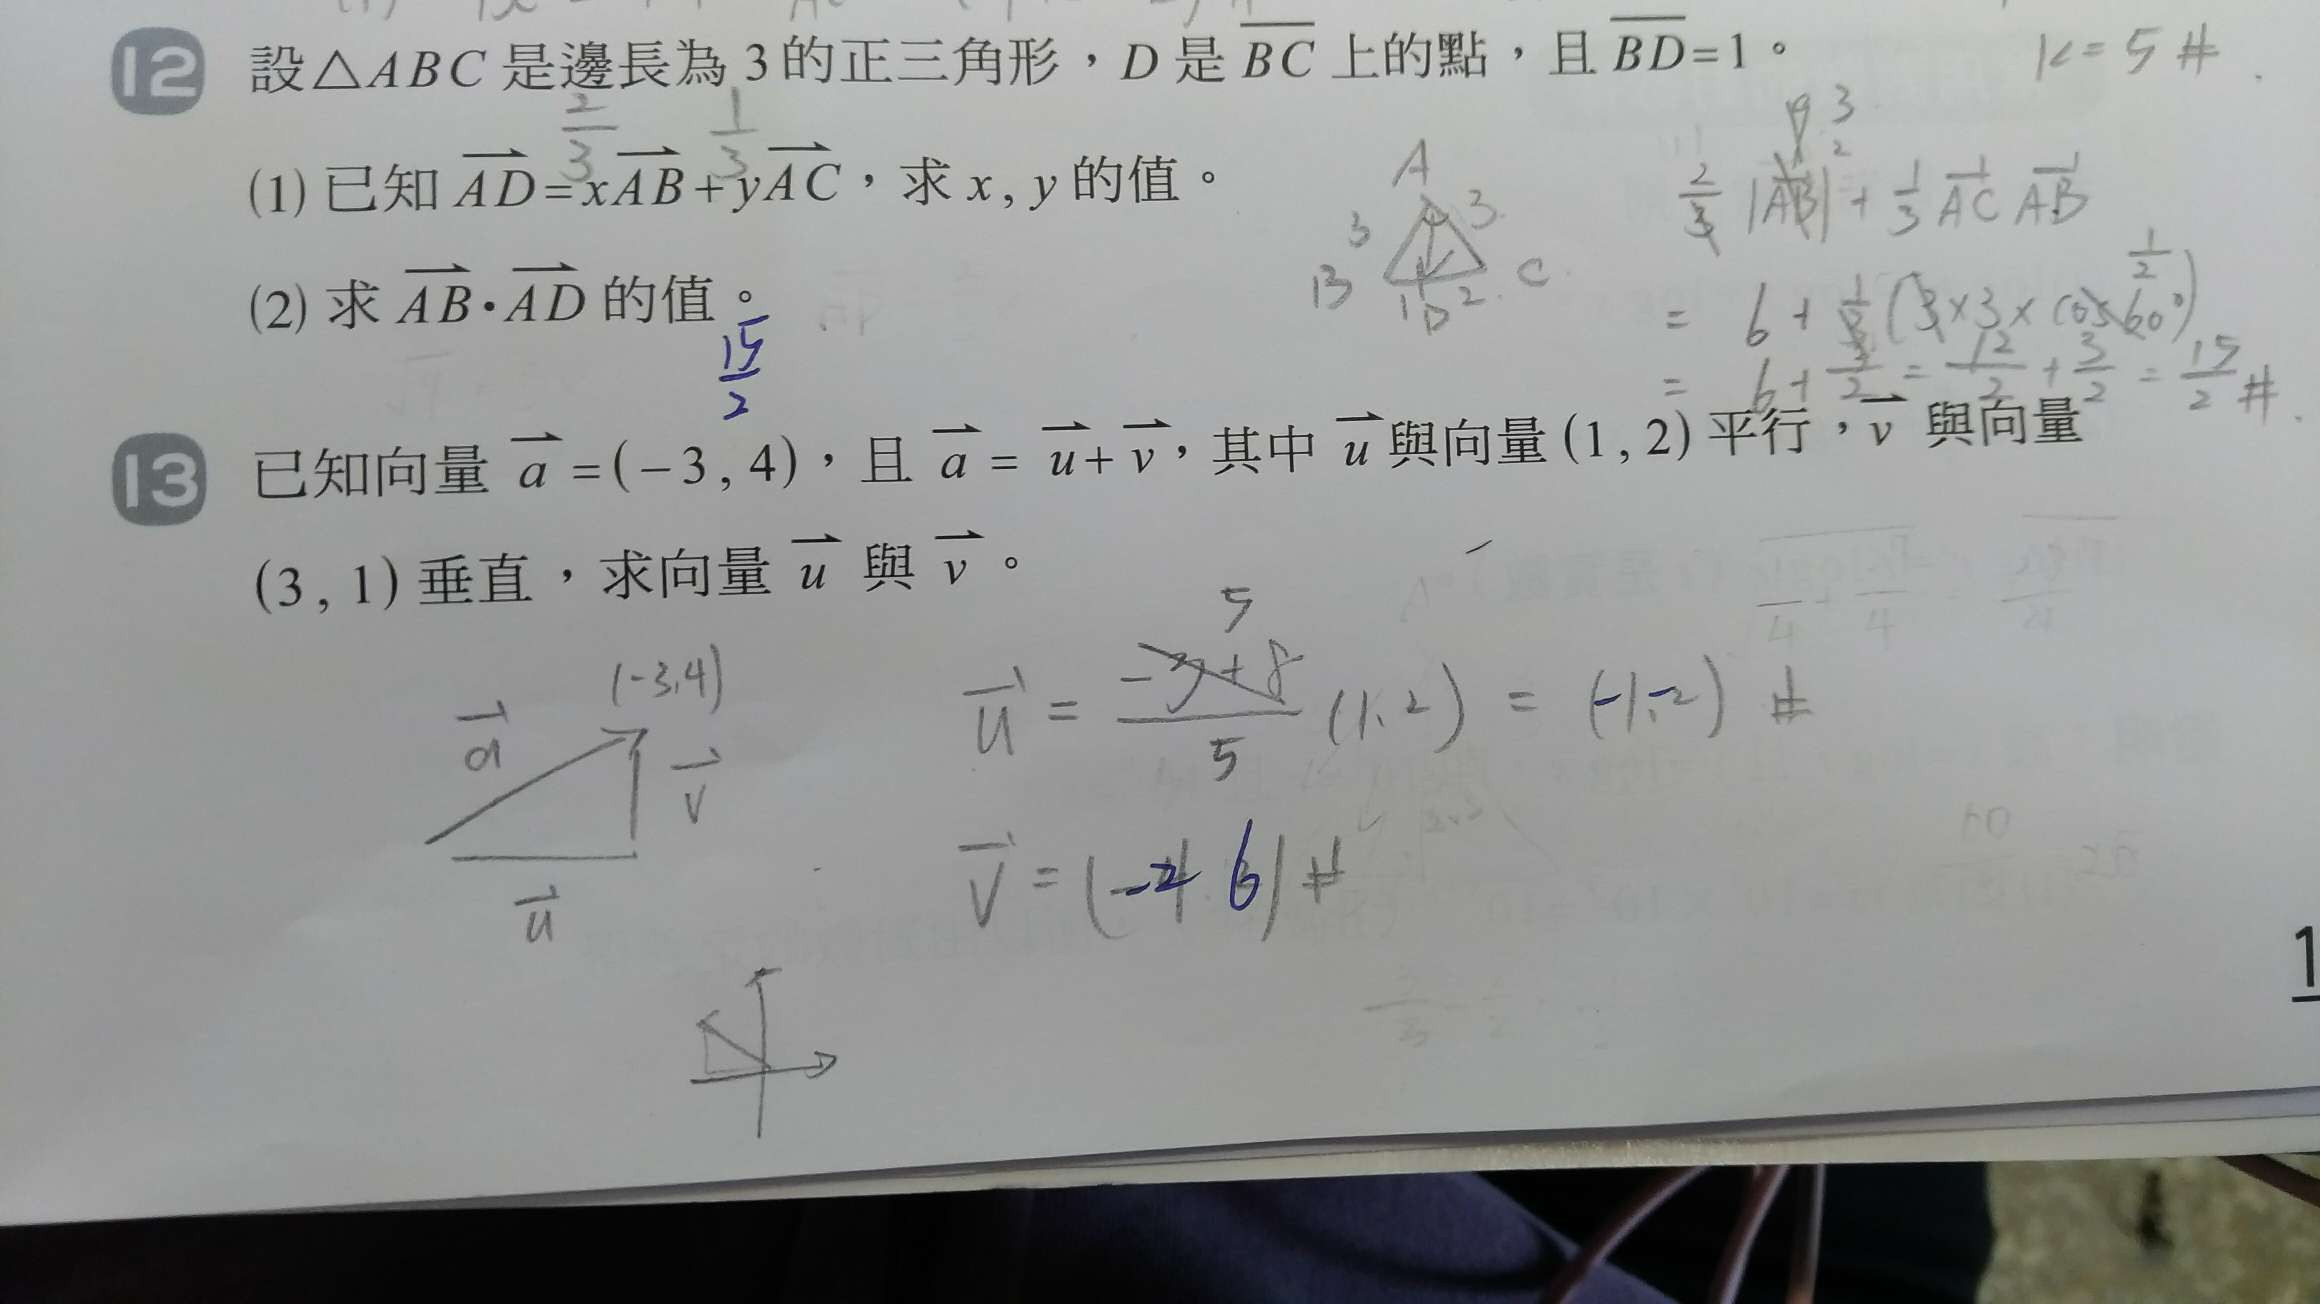 K=5 #
12 設△ABC 是邊長為 3 的正三角形，D 是 BC 上的點，且 BD=1。
2/3 1/3
(1) 已知 AD=xAB+yAC，求 x, y 的值。
(2) 求 AB·AD 的值。
15/2
A
3 3
B 1 D 2 C
9 3
2/3 |AB|² + 1/3 AC AB
= 6 + 1/3 (3×3×cos60°) 1/2
= 6 + 3/2 = 12/2 + 3/2 = 15/2 #
13 已知向量 a =(−3, 4)，且 a = u+v，其中 u 與向量 (1, 2) 平行，v 與向量
(3, 1) 垂直，求向量 u 與 v。
(-3,4)
a
v
u
5
u = -3+8/5 (1,2) = (-1,-2) #
v = (-2 6) #
1